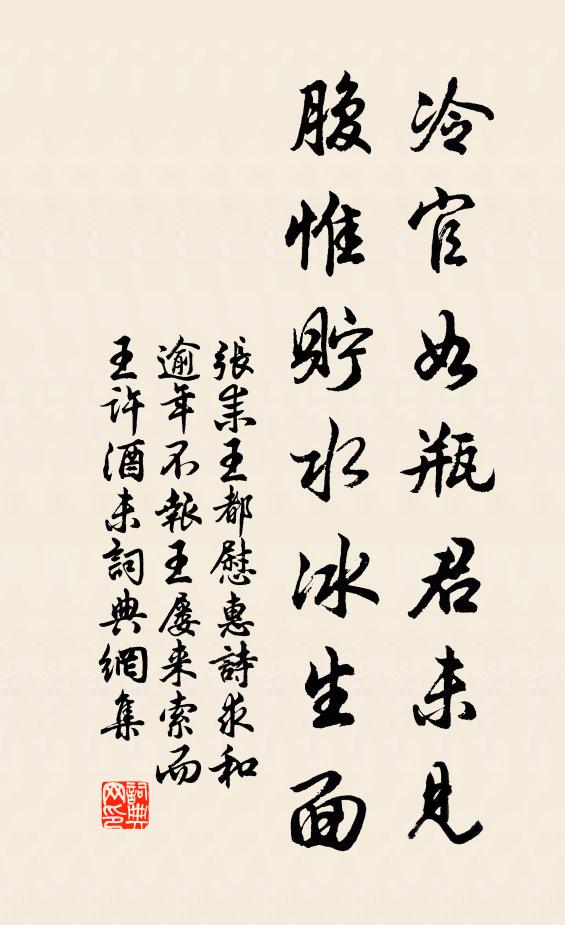 冷官如瓶君未見
腹惟貯水冰生面
張耒王都慰惠詩求和
逾年不報王屢来索而
王許酒未詞典網集
詞典网印